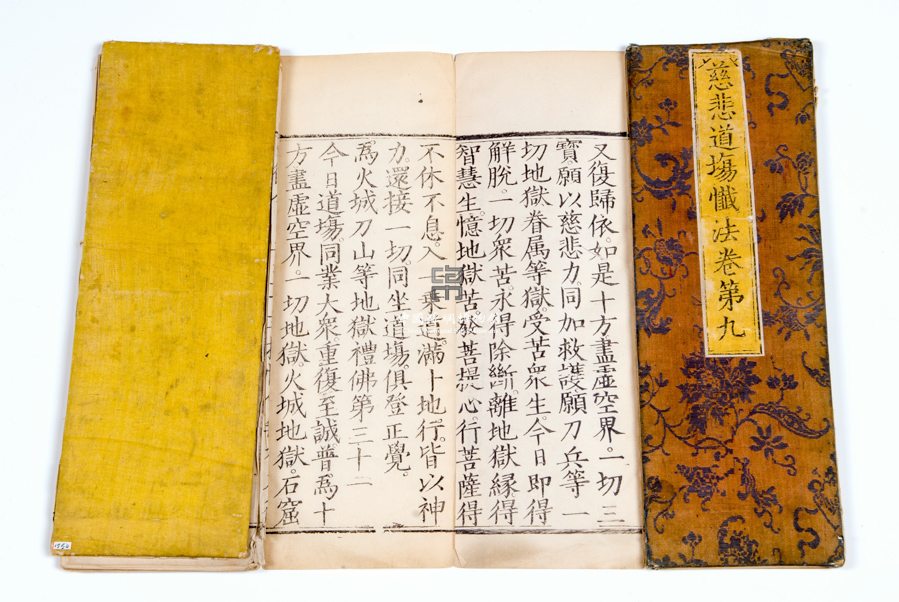 慈悲道塲懺法卷第九
又復歸依。如是十方盡虛空界。一切三
寶。願以慈悲力。同加救護。願刀兵等一
切地獄眷属等獄受苦衆生。今日即得
解脫。一切衆苦。永得除斷。離地獄緣。得
智慧生。憶地獄苦。發菩提心。行菩薩得
不休不息。入一乘道。滿十地行。皆以神
力。還接一切。同坐道塲。俱登正覺。
爲火城刀山等地獄禮佛第三十二
今日道塲。同業大衆。重復至誠。普爲十
方盡虛空界。一切地獄。火城地獄。石窟